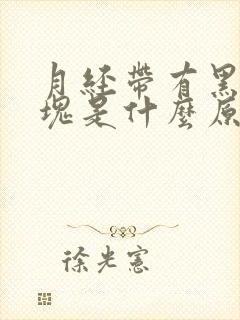 月經帶有黑
塊是什麼原
徐光憲